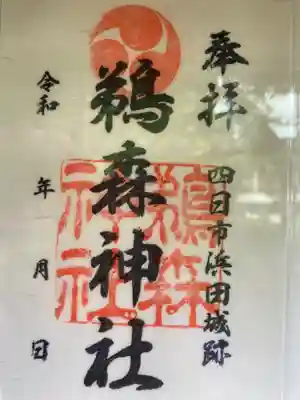 奉拝
四日市浜田城跡
鵜森神社
鵜森
神社
令和 年 月 日